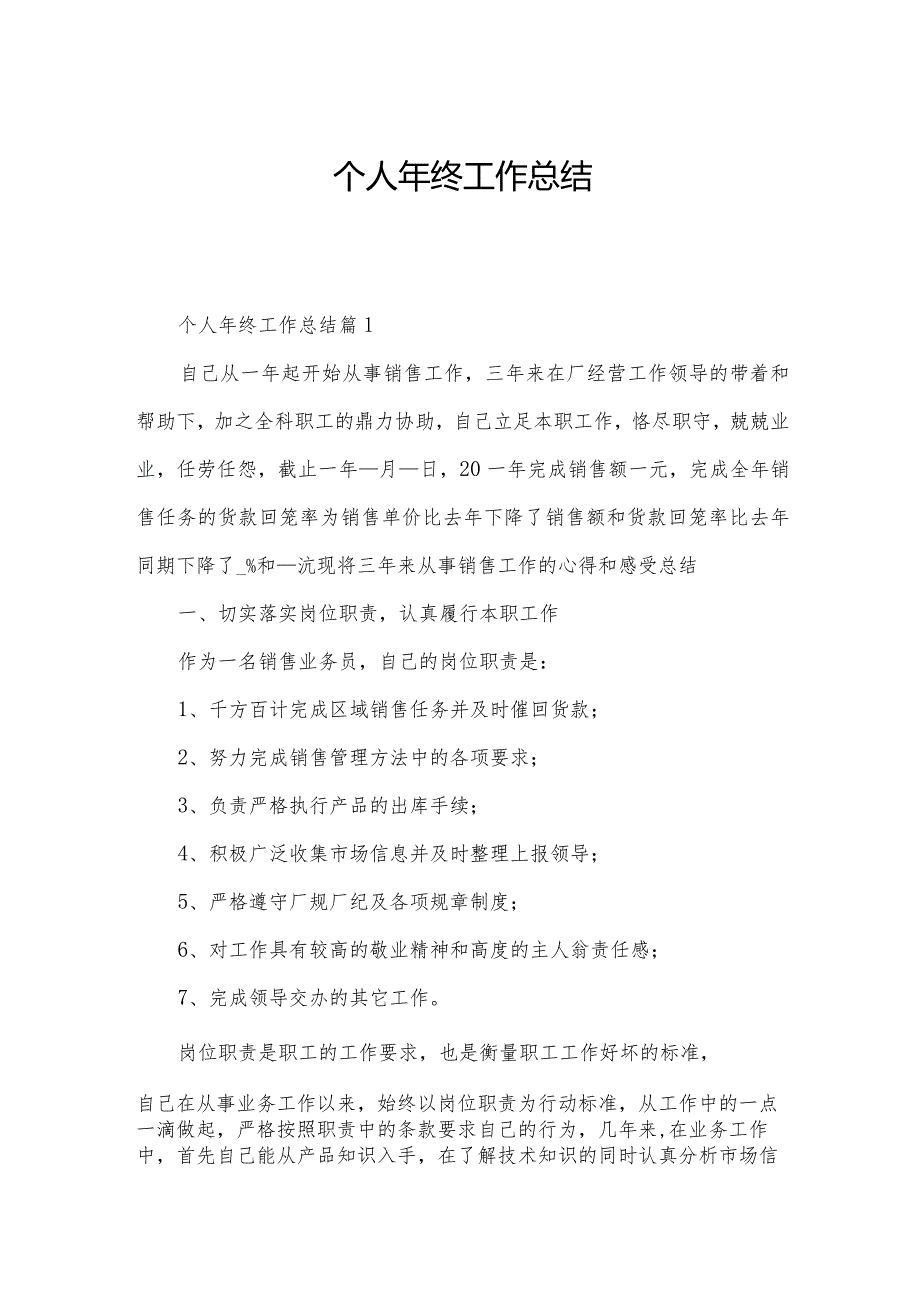 个人年终工作总结
个人年终工作总结篇1
自己从一年起开始从事销售工作，三年来在厂经营工作领导的带着和
帮助下，加之全科职工的鼎力协助，自己立足本职工作，恪尽职守，兢兢业
业，任劳任怨，截止一年—月—日，20一年完成销售额一元，完成全年销
售任务的货款回笼率为销售单价比去年下降了销售额和货款回笼率比去年
同期下降了_%和—沆现将三年来从事销售工作的心得和感受总结
一、切实落实岗位职责，认真履行本职工作
作为一名销售业务员，自己的岗位职责是：
1、千方百计完成区域销售任务并及时催回货款；
2、努力完成销售管理方法中的各项要求；
3、负责严格执行产品的出库手续；
4、积极广泛收集市场信息并及时整理上报领导；
5、严格遵守厂规厂纪及各项规章制度；
6、对工作具有较高的敬业精神和高度的主人翁责任感；
7、完成领导交办的其它工作。
岗位职责是职工的工作要求，也是衡量职工工作好坏的标准，
自己在从事业务工作以来，始终以岗位职责为行动标准，从工作中的一点
一滴做起，严格按照职责中的条款要求自己的行为，几年来,在业务工作
中，首先自己能从产品知识入手，在了解技术知识的同时认真分析市场信